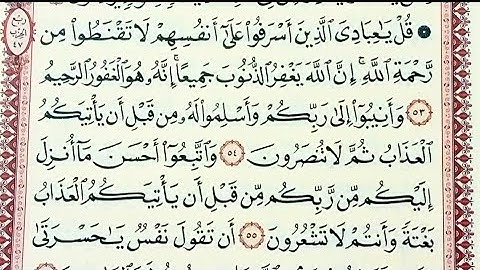 ۞ قُلْ يَٰعِبَادِىَ ٱلَّذِينَ أَسْرَفُوا۟ عَلَىٰٓ أَنفُسِهِمْ لَا تَقْنَطُوا۟ مِن
رَّحْمَةِ ٱللَّهِ ۚ إِنَّ ٱللَّهَ يَغْفِرُ ٱلذُّنُوبَ جَمِيعًا ۚ إِنَّهُۥ هُوَ ٱلْغَفُورُ ٱلرَّحِيمُ
٥٣ وَأَنِيبُوٓا۟ إِلَىٰ رَبِّكُمْ وَأَسْلِمُوا۟ لَهُۥ مِن قَبْلِ أَن يَأْتِيَكُمُ
ٱلْعَذَابُ ثُمَّ لَا تُنصَرُونَ ٥٤ وَٱتَّبِعُوٓا۟ أَحْسَنَ مَآ أُنزِلَ
إِلَيْكُم مِّن رَّبِّكُم مِّن قَبْلِ أَن يَأْتِيَكُمُ ٱلْعَذَابُ
بَغْتَةً وَأَنتُمْ لَا تَشْعُرُونَ ٥٥ أَن تَقُولَ نَفْسٌ يَٰحَسْرَتَىٰ
ربع
الحزب
٤٧